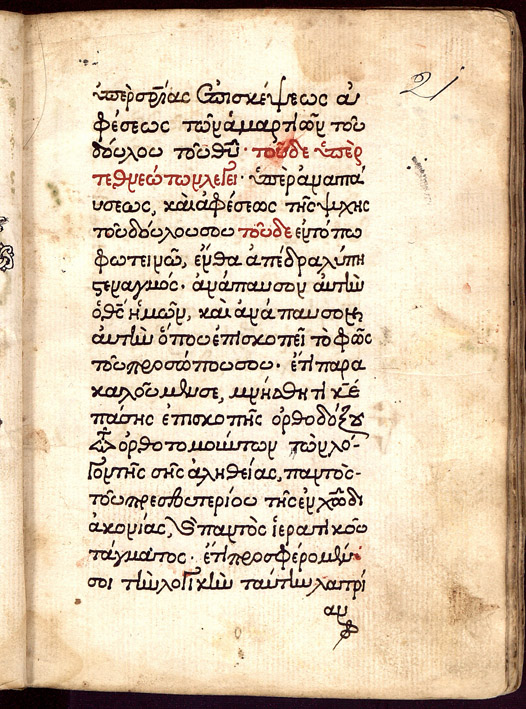 21
ὑπὲρ σρίας ἐπισκέψεως ἀ
φέσεως τῶν ἁμαρτιῶν τοῦ
δούλου τοῦ θῦ· τοῦδε ὑπὲρ
τεθνεώτων λέγει· ὑπὲρ ἀναπά
υσεως, καὶ ἀφέσεως τῆς ψυχῆς
τοῦ δούλου σου τοῦδε ἐν τόπω
φωτεινῶ, ἔνθα ἀπέδρα λύπη
στεναγμός· ἀνάπαυσον αὐτὴν
ὁ θς ἡμῶν, καὶ ἀνάπαυσον
αὐτὴν ὅπου ἐπισκοπεῖ τὸ φῶς
τοῦ προσόπου σου· ἔτι παρα
καλοῦμέν σε, μνήσθητι κε
πάσης ἐπισκοπῆς ὀρθοδόξου
τῶν ὀρθοτομούντων τὸν λό
γον τῆς σῆς ἀληθείας, παντὸς
τοῦ πρεσβυτερίου τῆς ἐν χῶ δι
ακονίας, καὶ παντὸς ἱερατικοῦ
τάγματος· ἔτι προσφέρομέν
σοι τὴν λογικὴν ταύτην λατρί
αν